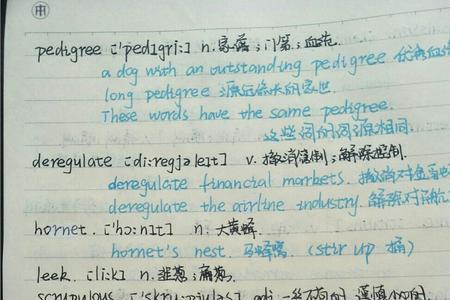 pedigree ['pedɪgri:] n. 家谱；门第；血统.
a dog with an outstanding pedigree 优秀血
long pedigree 源远流长的家世
These words have the same pedigree.
这些词的词源相同.
deregulate [di:regjəleɪt] v. 撤消管制；解除控制.
deregulate financial markets. 撤消对金
deregulate the airline industry. 解除对
hornet. ['hɔ:nɪt] n. 大黄蜂
hornet's nest. 马蜂窝. (stir up 捅)
leek. [li:k] n. 韭葱；
scrupulous adj